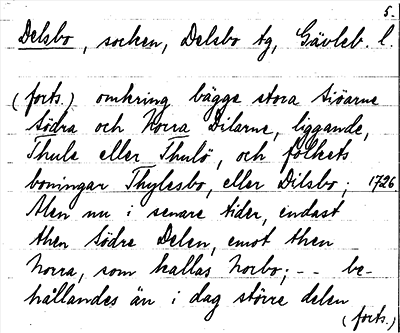 5.
Delsbo, socken, Delsbo tg, Gävleb. l.
(forts.) omkring bägge stora Siöarne
Södra och Norra Dilarne, liggande,
Thule eller Thulö, och folkets
boningar Thylesbo, eller Dilsbo; 1726
Men nu i senare tider, endast
then Södre Delen, emot then
Norra, som kallas Norbo; -- be-
hållandes än i dag större delen
(forts.)